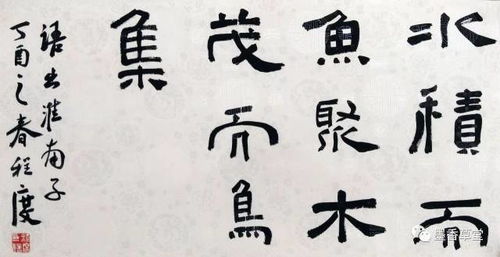 水積而
魚聚木
茂而鳥
集
語出淮南子
丁酉之春程度
墨香草堂